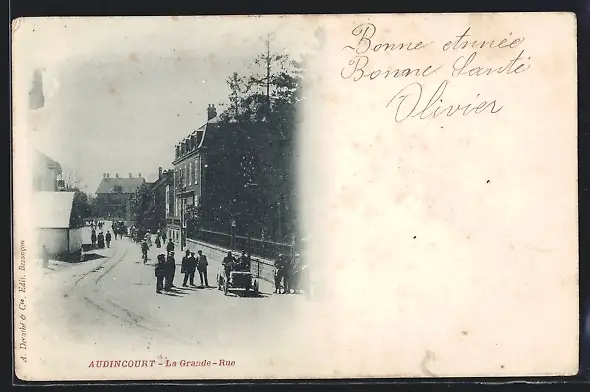 Bonne Année
Bonne Santé
Olivier
AUDINCOURT - La Grande-Rue
A. Deraihé & Cie. Edit. Besançon